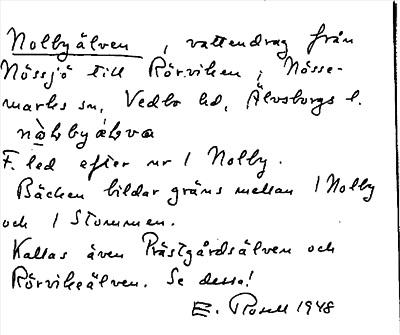 Nolbyälven, vattendrag från
Nössjö till Rörviken, Nösse-
marks sn, Vedbo hd, Älvsborgs l.
F. led efter nr 1 Nolby.
Bäcken bildar gräns mellan 1 Nolby
och 1 Stommen.
Kallas även Prästgårdsälven och
Rörvikeälven. Se dessa!
E. Rosell 1948